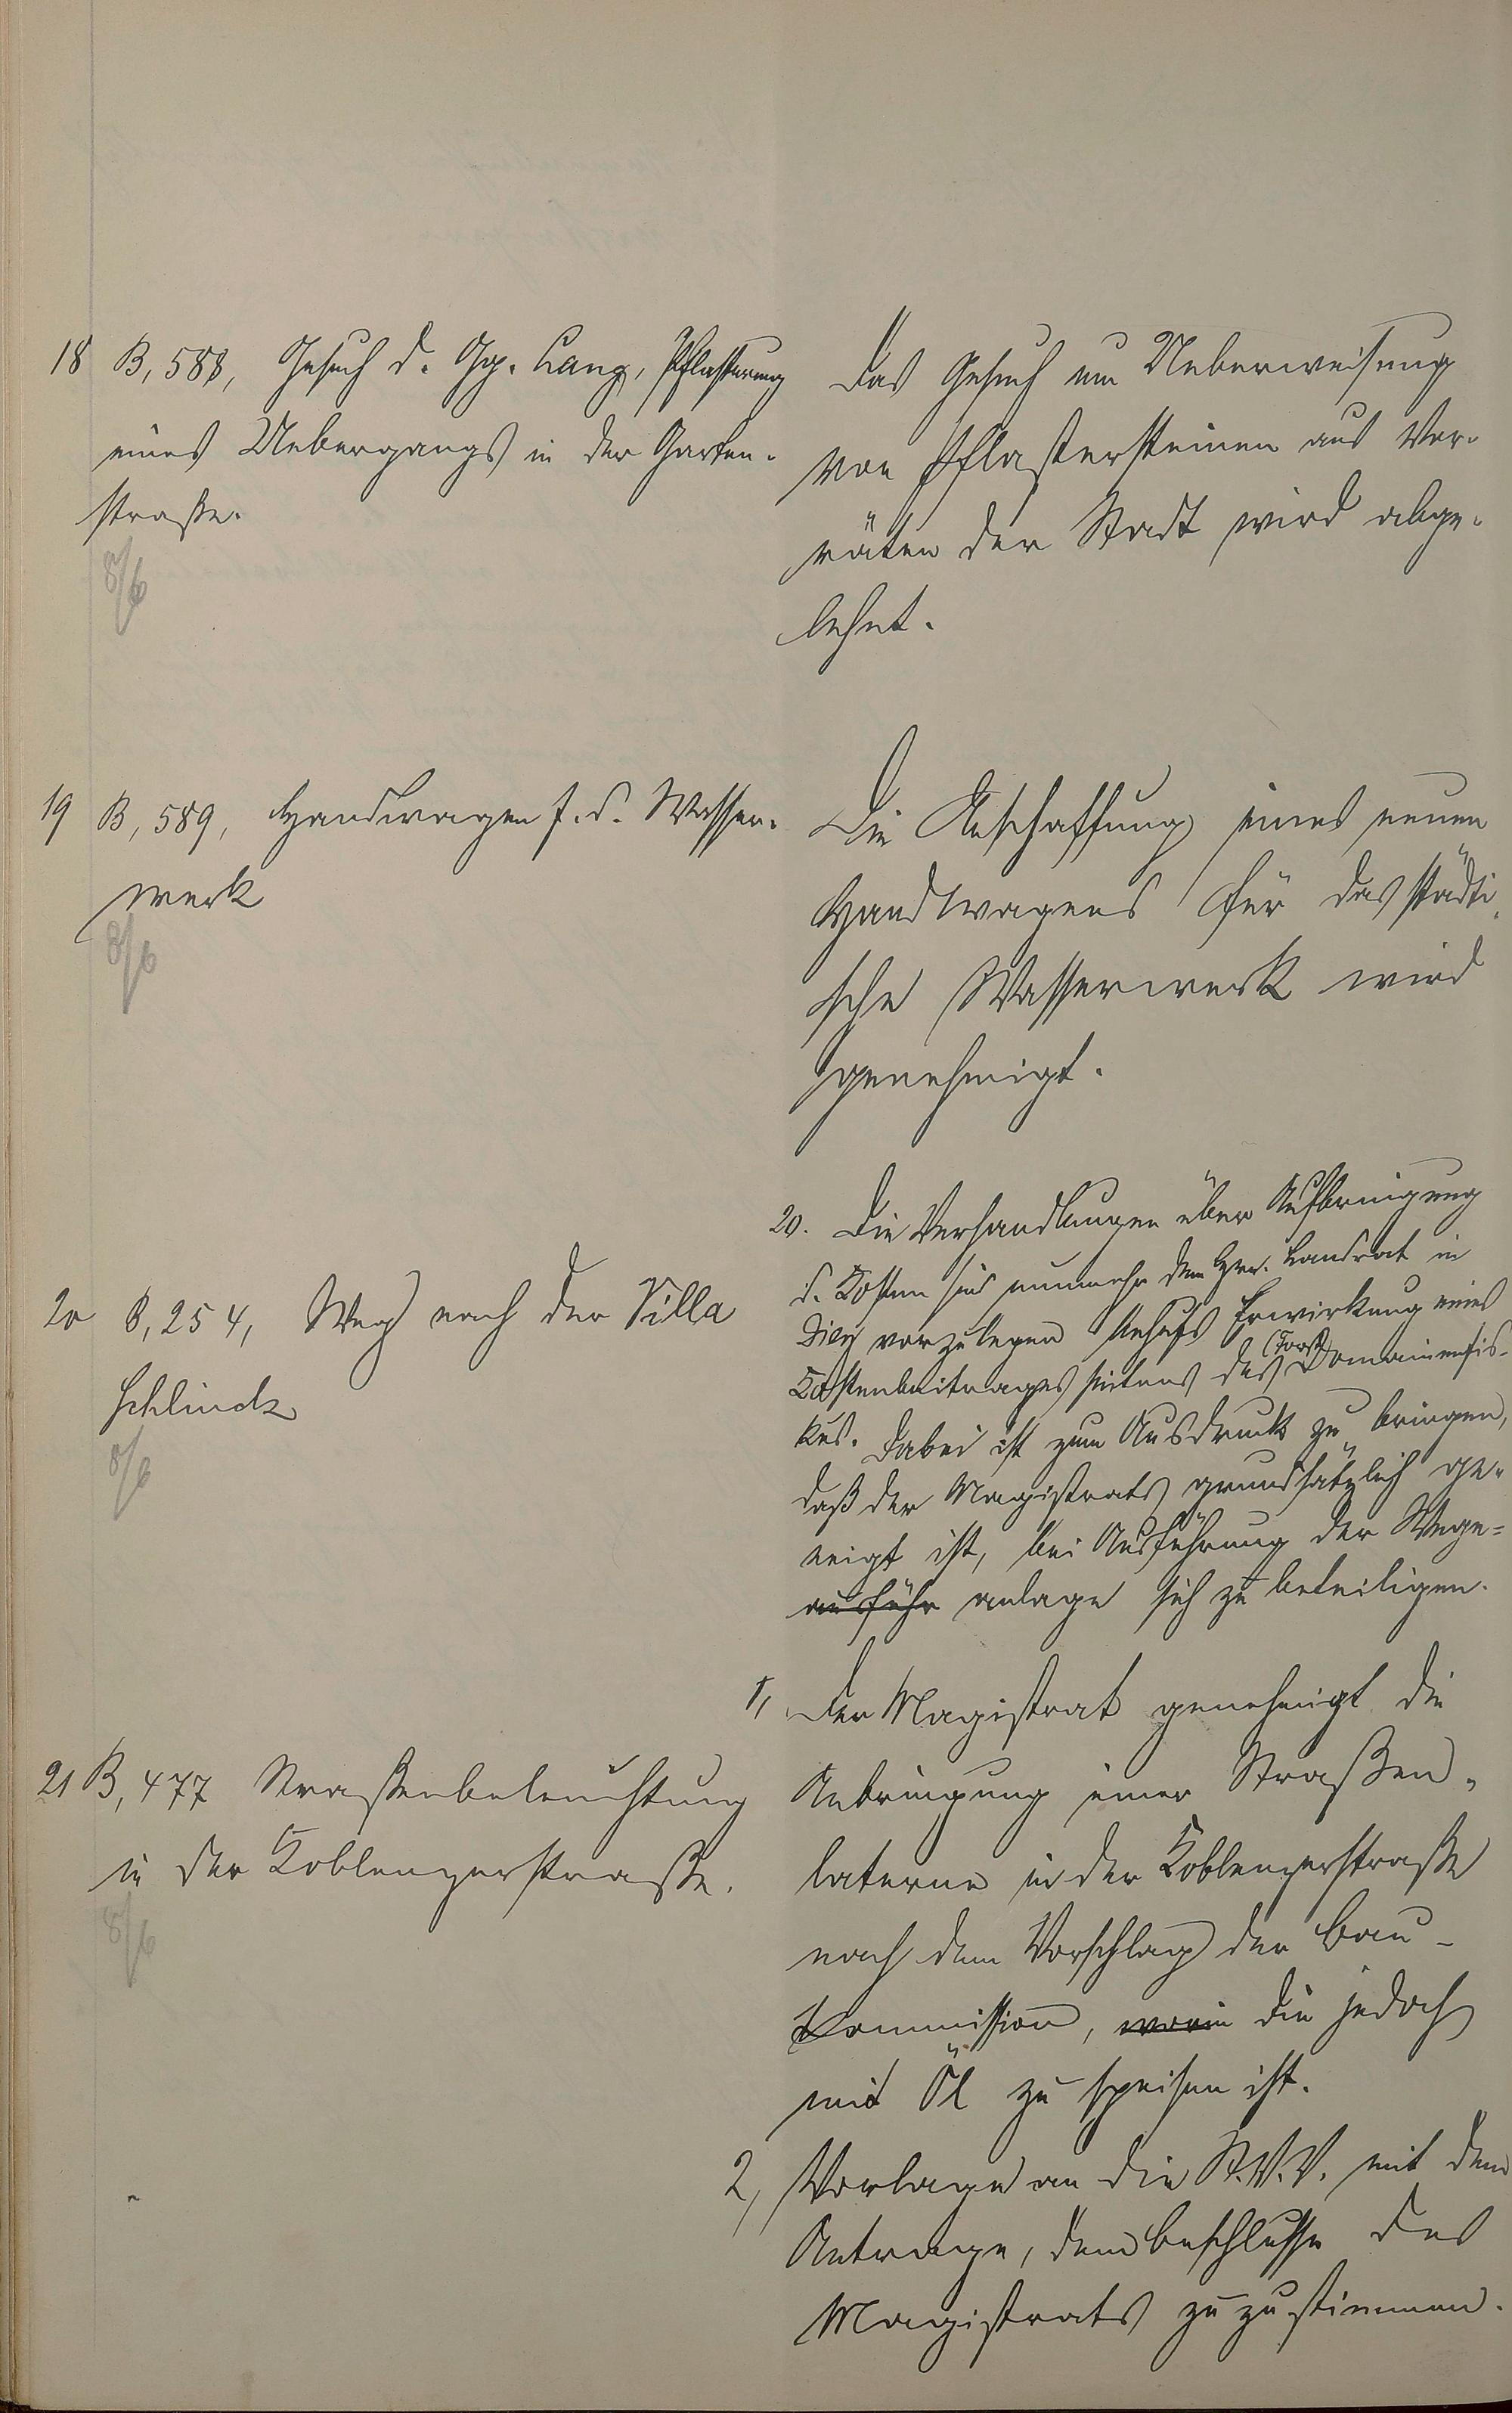 18 B, 588, Gesuch d. Gg. Lang, Pflasterung
eines Uebergangs in der Garten-
straße.
8/6
Das Gesuch um Ueberweisung
von Pflastersteinen aus Vor-
räten der Stadt wird abge-
lehnt.
19 B, 589, Handwagen f. d. Wasser-
werk
8/6
Die Anschaffung eines neuen
Handwagens für das städti-
sche Wasserwerk wird
genehmigt.
20 B, 254, Weg nach der Villa
Schlinck
8/6
20. Die Verhandlungen über Aufbringung
d. Kosten sind nunmehr dem Hrn. Landrat in
Diez vorzulegen behufs Erwirkung eines
Kostenbeitrages seitens des (Forst) Domainenfis-
kus. Dabei ist zum Ausdruck zu bringen,
daß der Magistrats grundsätzlich ge-
neigt ist, bei Ausführung der Wege-
ausführ anlage sich zu beteiligen.
21 B, 477 Straßenbeleuchtung
in der Koblenzerstraße.
8/6
1, Der Magistrat genehmigt die
Anbringung einer Straßen-
laterne in der Koblenzerstraße
nach dem Vorschlag der Bau-
kommission, worin die jedoch
mit Öl zu speisen ist.
2, Vorlage an die St.V.V. mit dem
Antrage, dem Beschlusse des
Magistrats zuzustimmen.